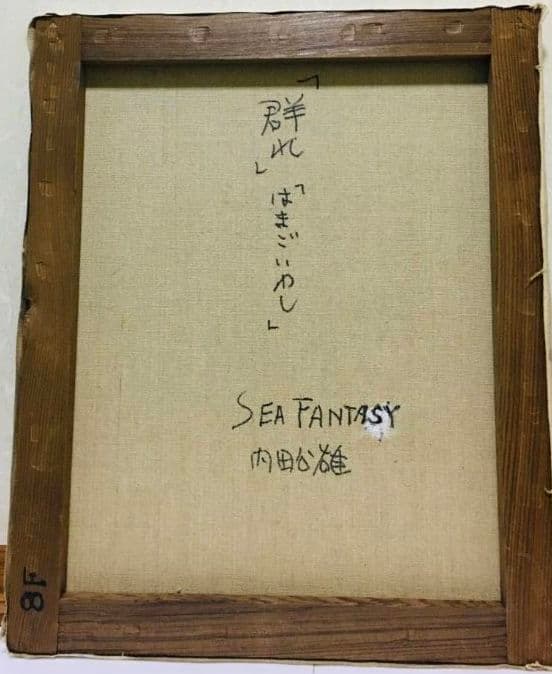 「群れ」
「はまごいわし」
SEA FANTASY
内田公雄
8F